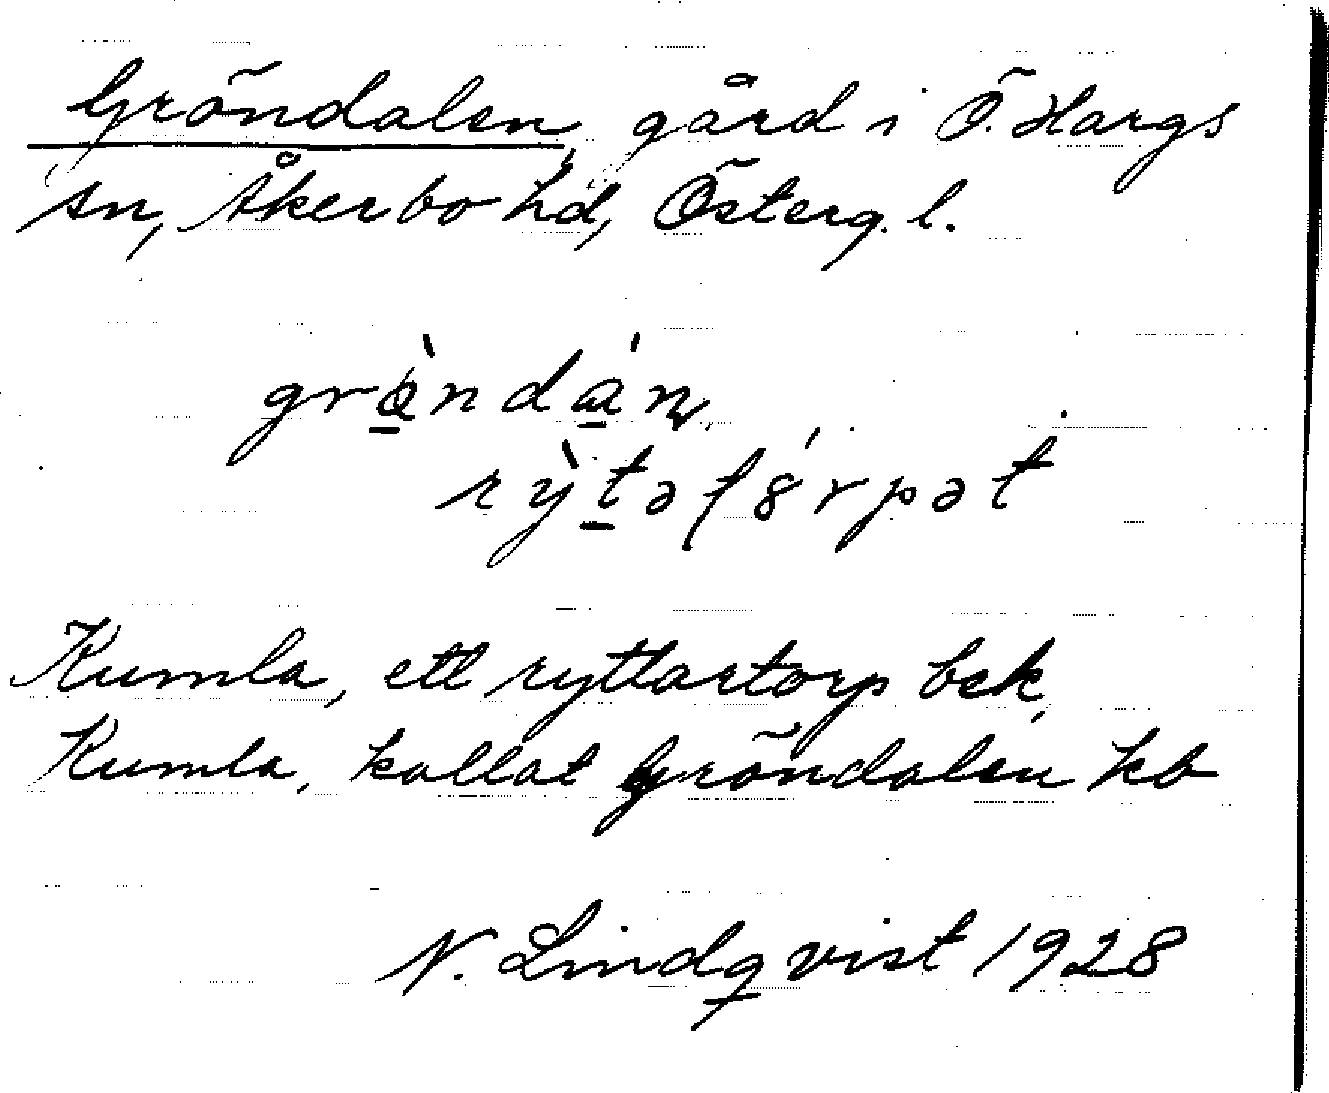 Gröndalen, gård i Ö. Hargs
sn, Åkerbo hd, Österg. l.
grö̀ndán,
rỳtəʃ8́rpət
Kumla, ett ryttartorp bek,
Kumla, kallat Gröndalen kb
N. Lindqvist 1928